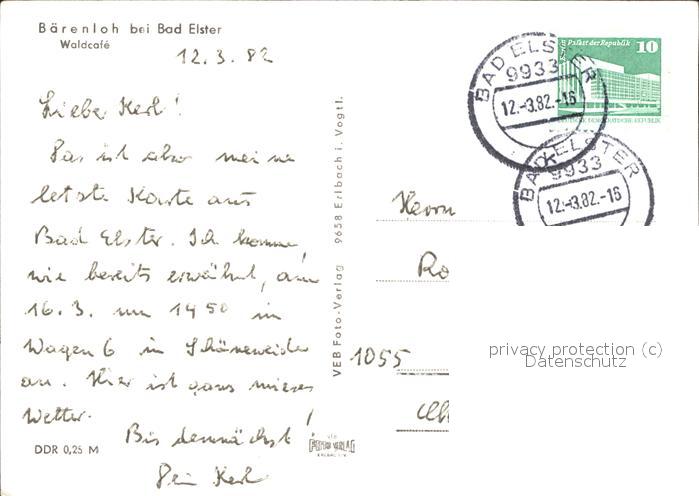 Bärenloh bei Bad Elster
Waldcafé
12.3.82
Lieber Kerl!
Das ist also meine
letzte Karte aus
Bad Elster. Ich komme,
wie bereits erwähnt, am
16.3. um 1950 in
Wagen 6 in Schöneweide
an. Hier ist ganz mieses
Wetter.
Bis demnächst!
Dein Kerl
DDR 0,25 M
VEB Foto-Verlag 9658 Erlbach i. Vogtl.
VEB
FOTO-VERLAG
BAD ELSTER
9933
12.-3.82.-16
Palast der Republik 10
DEUTSCHE DEMOKRATISCHE REPUBLIK
BAD ELSTER
9933
12.-3.82.-16
Herrn
Ro
1055
privacy protection (c)
Datenschutz